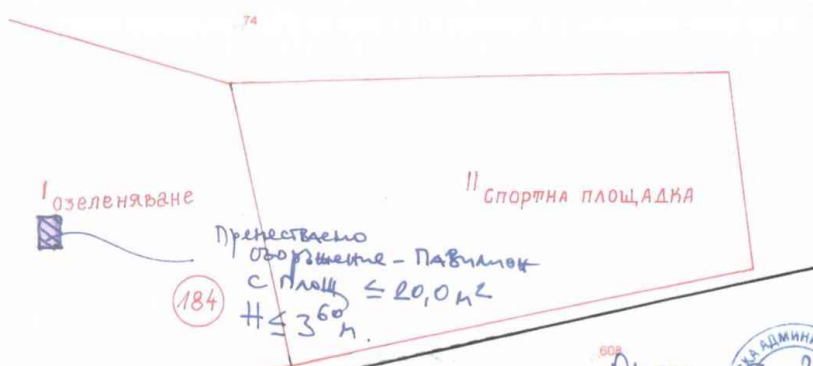 74
I озеленяване
II спортна площадка
Преместваемо
съоръжение - Павилион
с площ ≤ 20,0 м²
184
H ≤ 3⁶⁰ м.
608
КА АДМИНИ